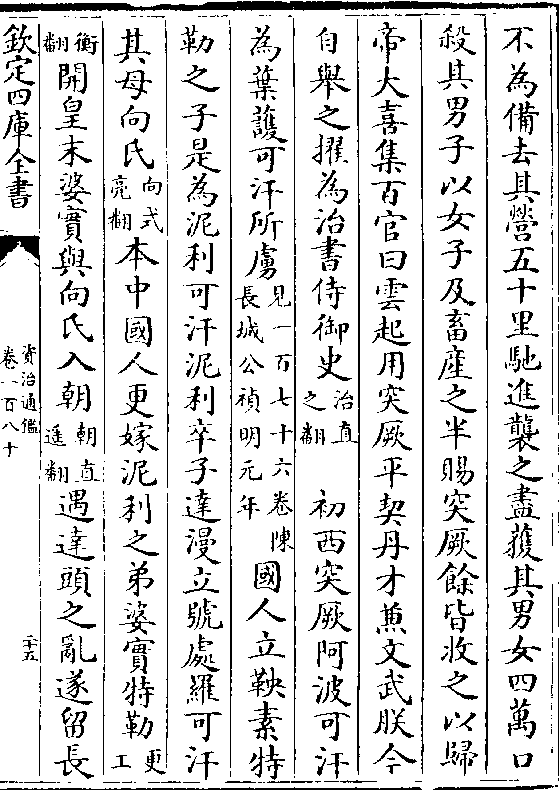 不為備去其營五十里馳進襲之盡獲其男女四萬口
殺其男子以女子及畜產之半賜突厥餘皆收之以歸
帝大喜集百官曰雲起用突厥平契丹才兼文武朕今
自舉之擢為治書侍御史治直之翻 初西突厥阿波可汗
為葉護可汗所虜見一百七十六卷陳長城公禎明元年國人立鞅素特
勒之子是為泥利可汗泥利卒子達漫立號處羅可汗
其母向氏向式亮翻本中國人更嫁泥利之弟婆實特勒更工
衡翻開皇末婆實與向氏入朝朝直遥翻遇達頭之亂遂留長
欽定四庫全書
資治通鑑
卷一百八十
二十五